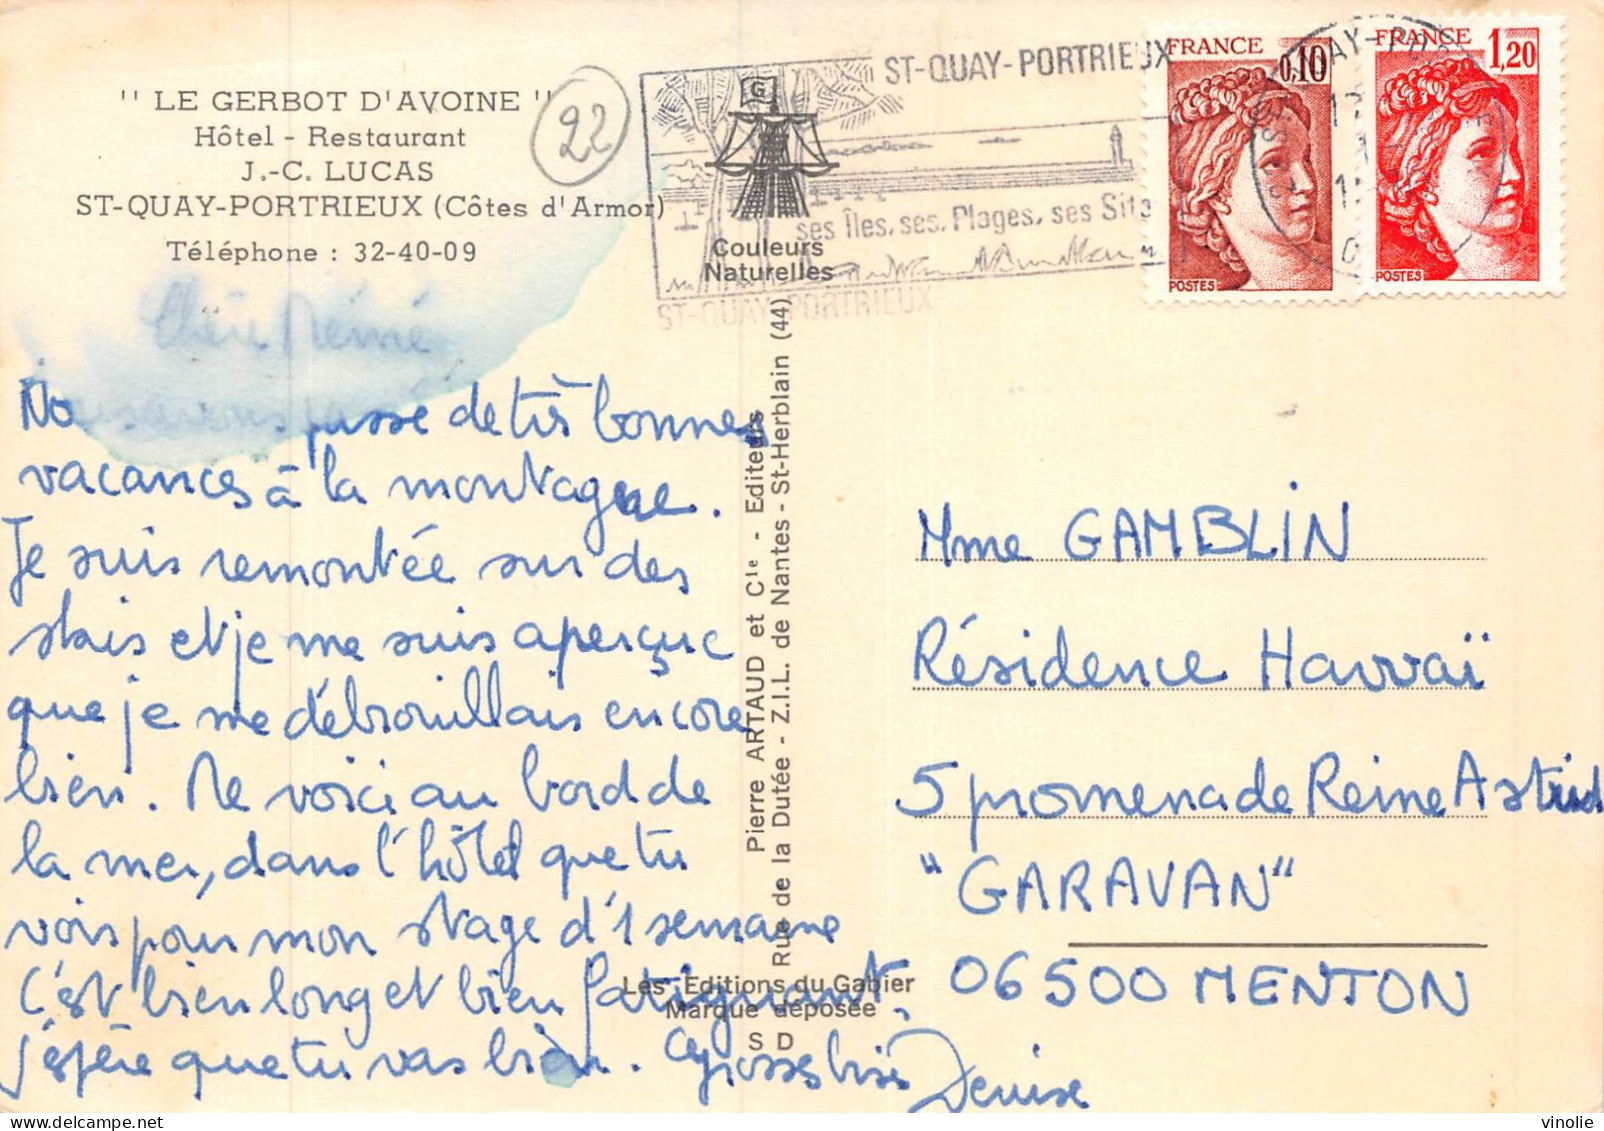 '' LE GERBOT D'AVOINE ''
Hôtel - Restaurant
J.-C. LUCAS
ST-QUAY-PORTRIEUX (Côtes d'Armor)
Téléphone : 32-40-09
22
ST-QUAY-PORTRIEUX
ses Îles, ses Plages, ses Site
ST-QUAY-PORTRIEUX
G
Couleurs
Naturelles
FRANCE
0,10
POSTES
FRANCE
1,20
POSTES
Chère Mémé
Nous avons passé de très bonnes
vacances à la montagne.
Je suis remontée sur des
skis et je me suis aperçue
que je me débrouillais encore
bien. Me voici au bord de
la mer, dans l'hôtel que tu
vois pour mon stage d'1 semaine
C'est bien long et bien fatiguant.
j'espère que tu vas bien. Grosses bises
Denise
Pierre ARTAUD et Cie - Editeurs
Rue de la Dutée - Z.I.L. de Nantes - St-Herblain (44)
Les Editions du Gabier
Marque déposée
S D
Mme GAMBLIN
Résidence Hawaï
5 promenade Reine Astrid
"GARAVAN"
06500 MENTON
vinolie